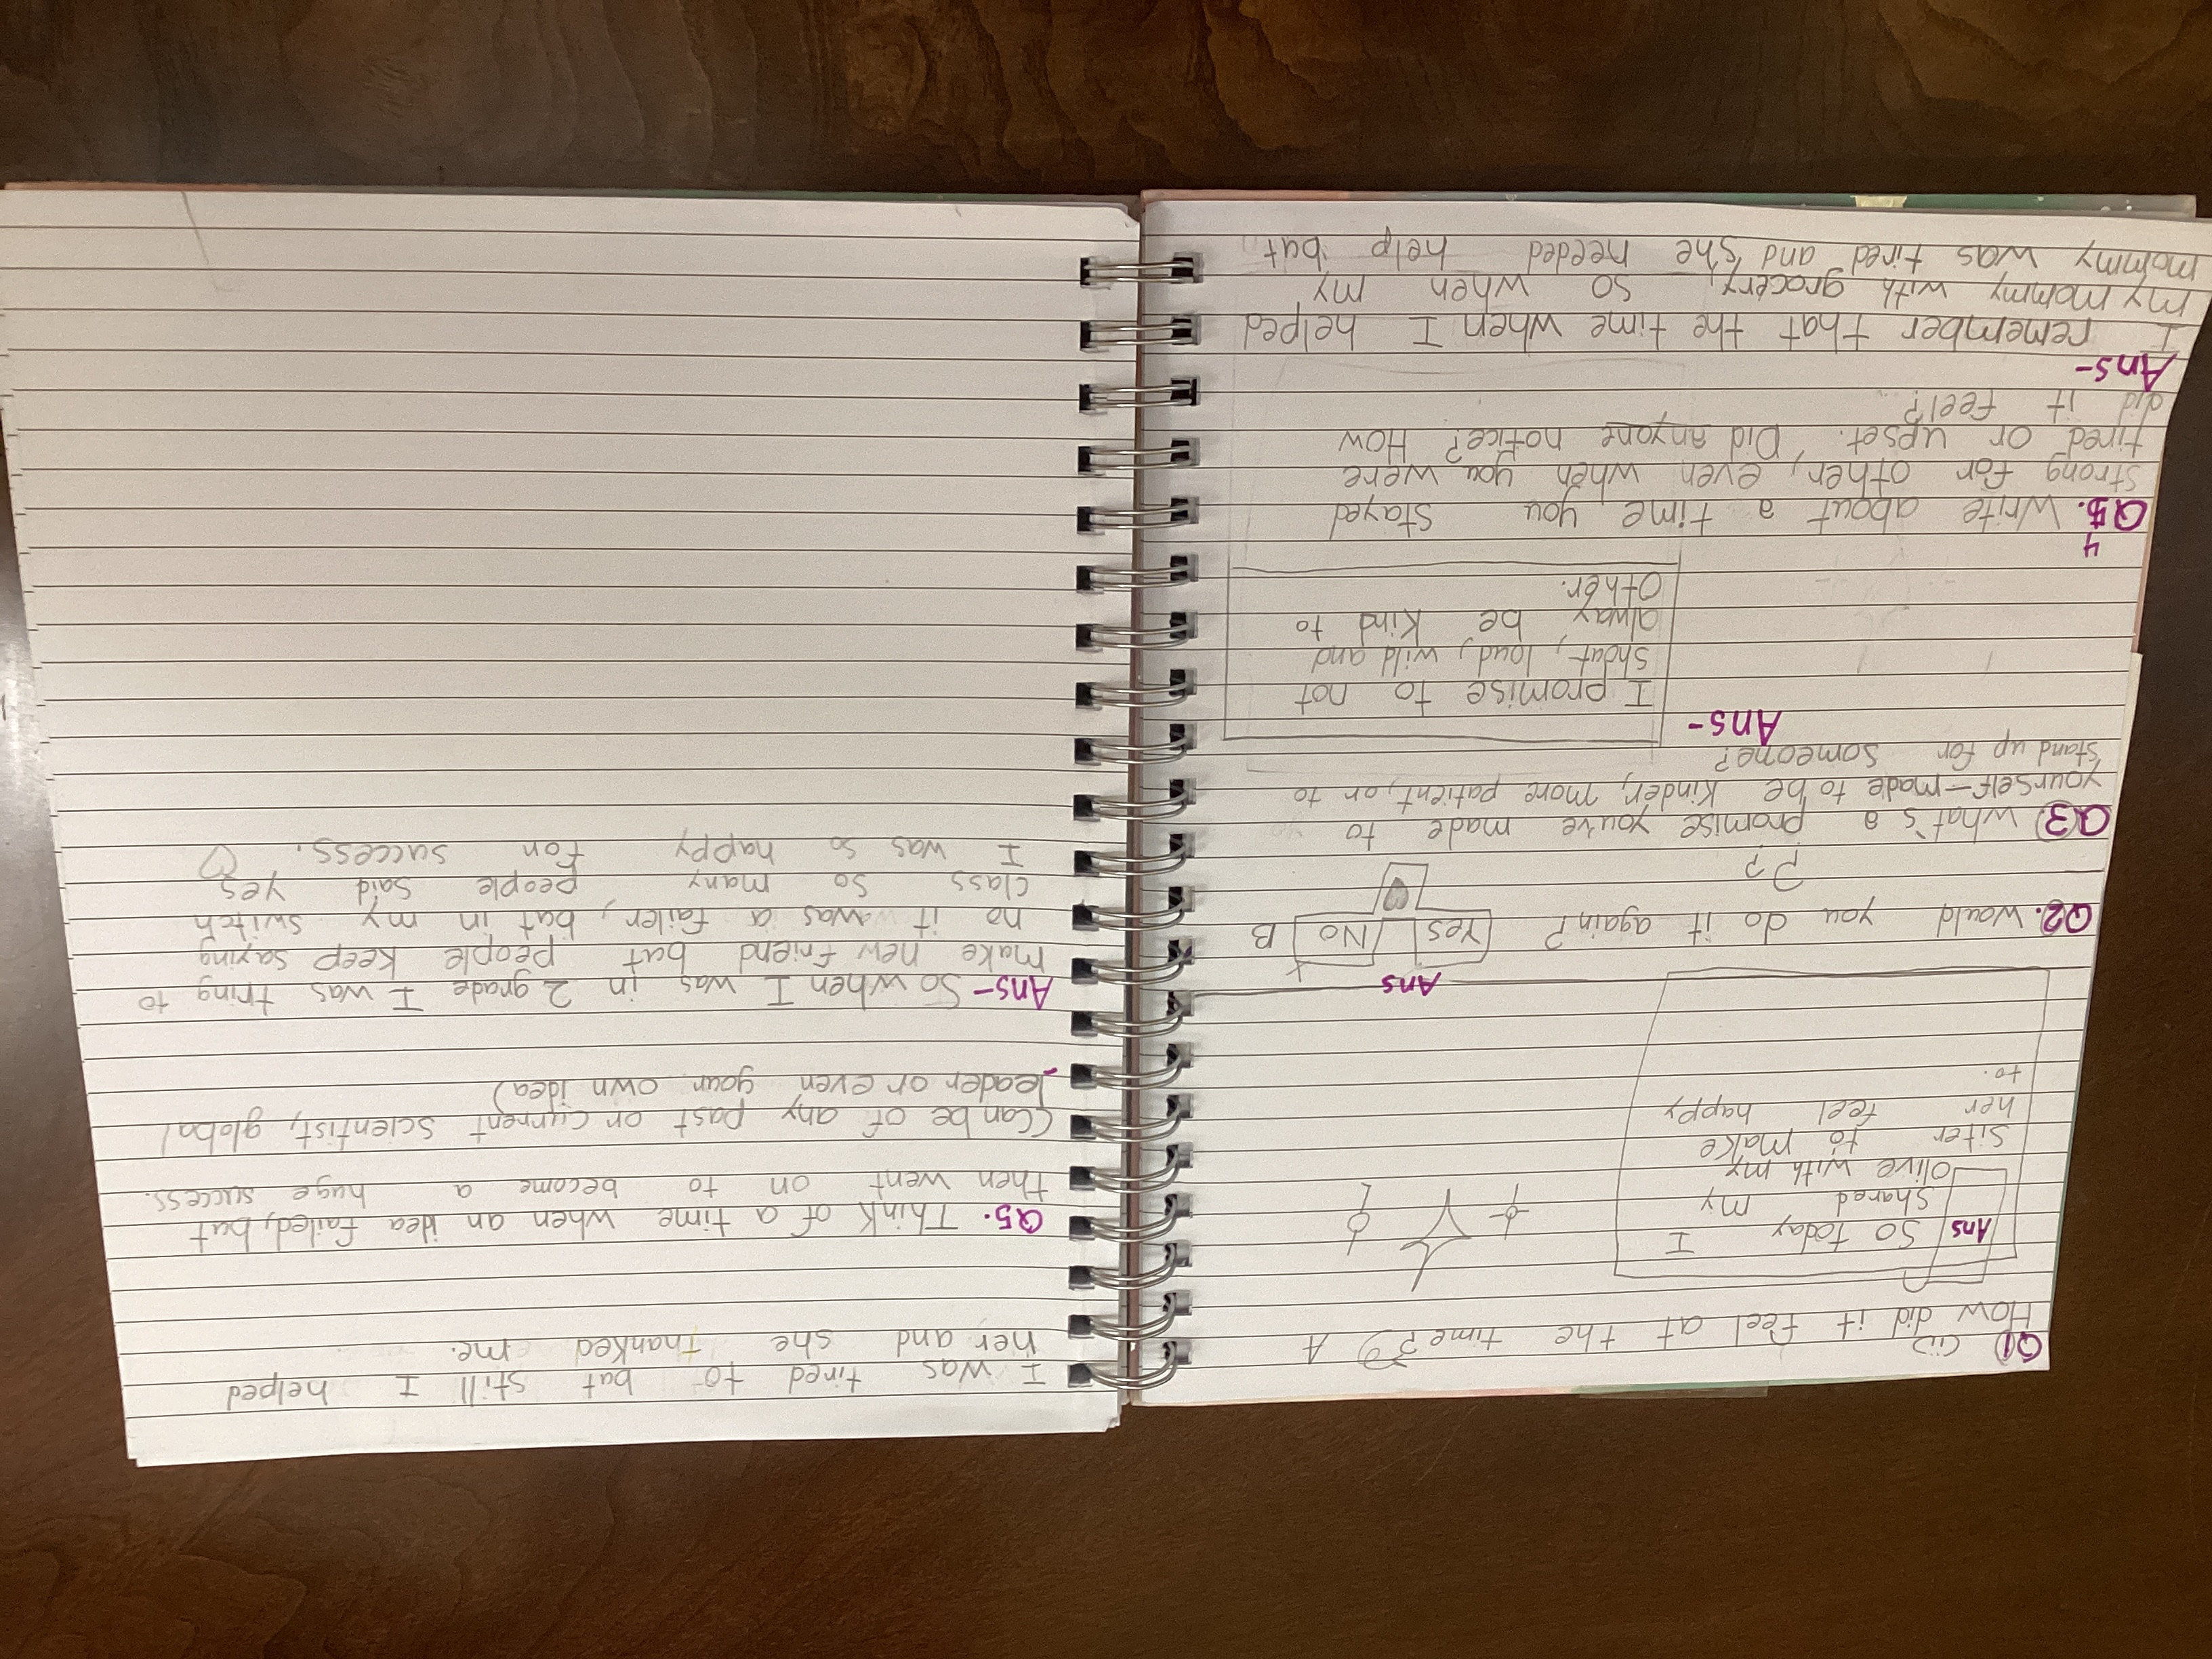 Q1 (ii)
How did it feel at the time? A
Ans So today I
shared my
olive with my
siter to make
her feel happy
to.
Ans
Q2. Would you do it again? Yes No B
??
Q3 What's a promise you've made to
yourself-made to be kinder, more patient, or to
stand up for someone?
Ans-
I promise to not
shout, loud, wild and
alway be kind to
other.
4
Q5. Write about a time you stayed
strong for other, even when you were
tired or upset. Did anyone notice? How
did it feel?
Ans-
I remember that the time when I helped
my mommy with grocery, so when my
mommy was tired and she needed help but
I was tired to but still I helped
her and she thanked me.
Q5. Think of a time when an idea failed, but
then went on to become a huge success.
(can be of any past or current scientist, global
leader or even your own idea)
Ans- So when I was in 2 grade I was tring to
make new friend but people keep saying
no it was a failer, but in my switch
class so many people said yes
I was so happy for success.